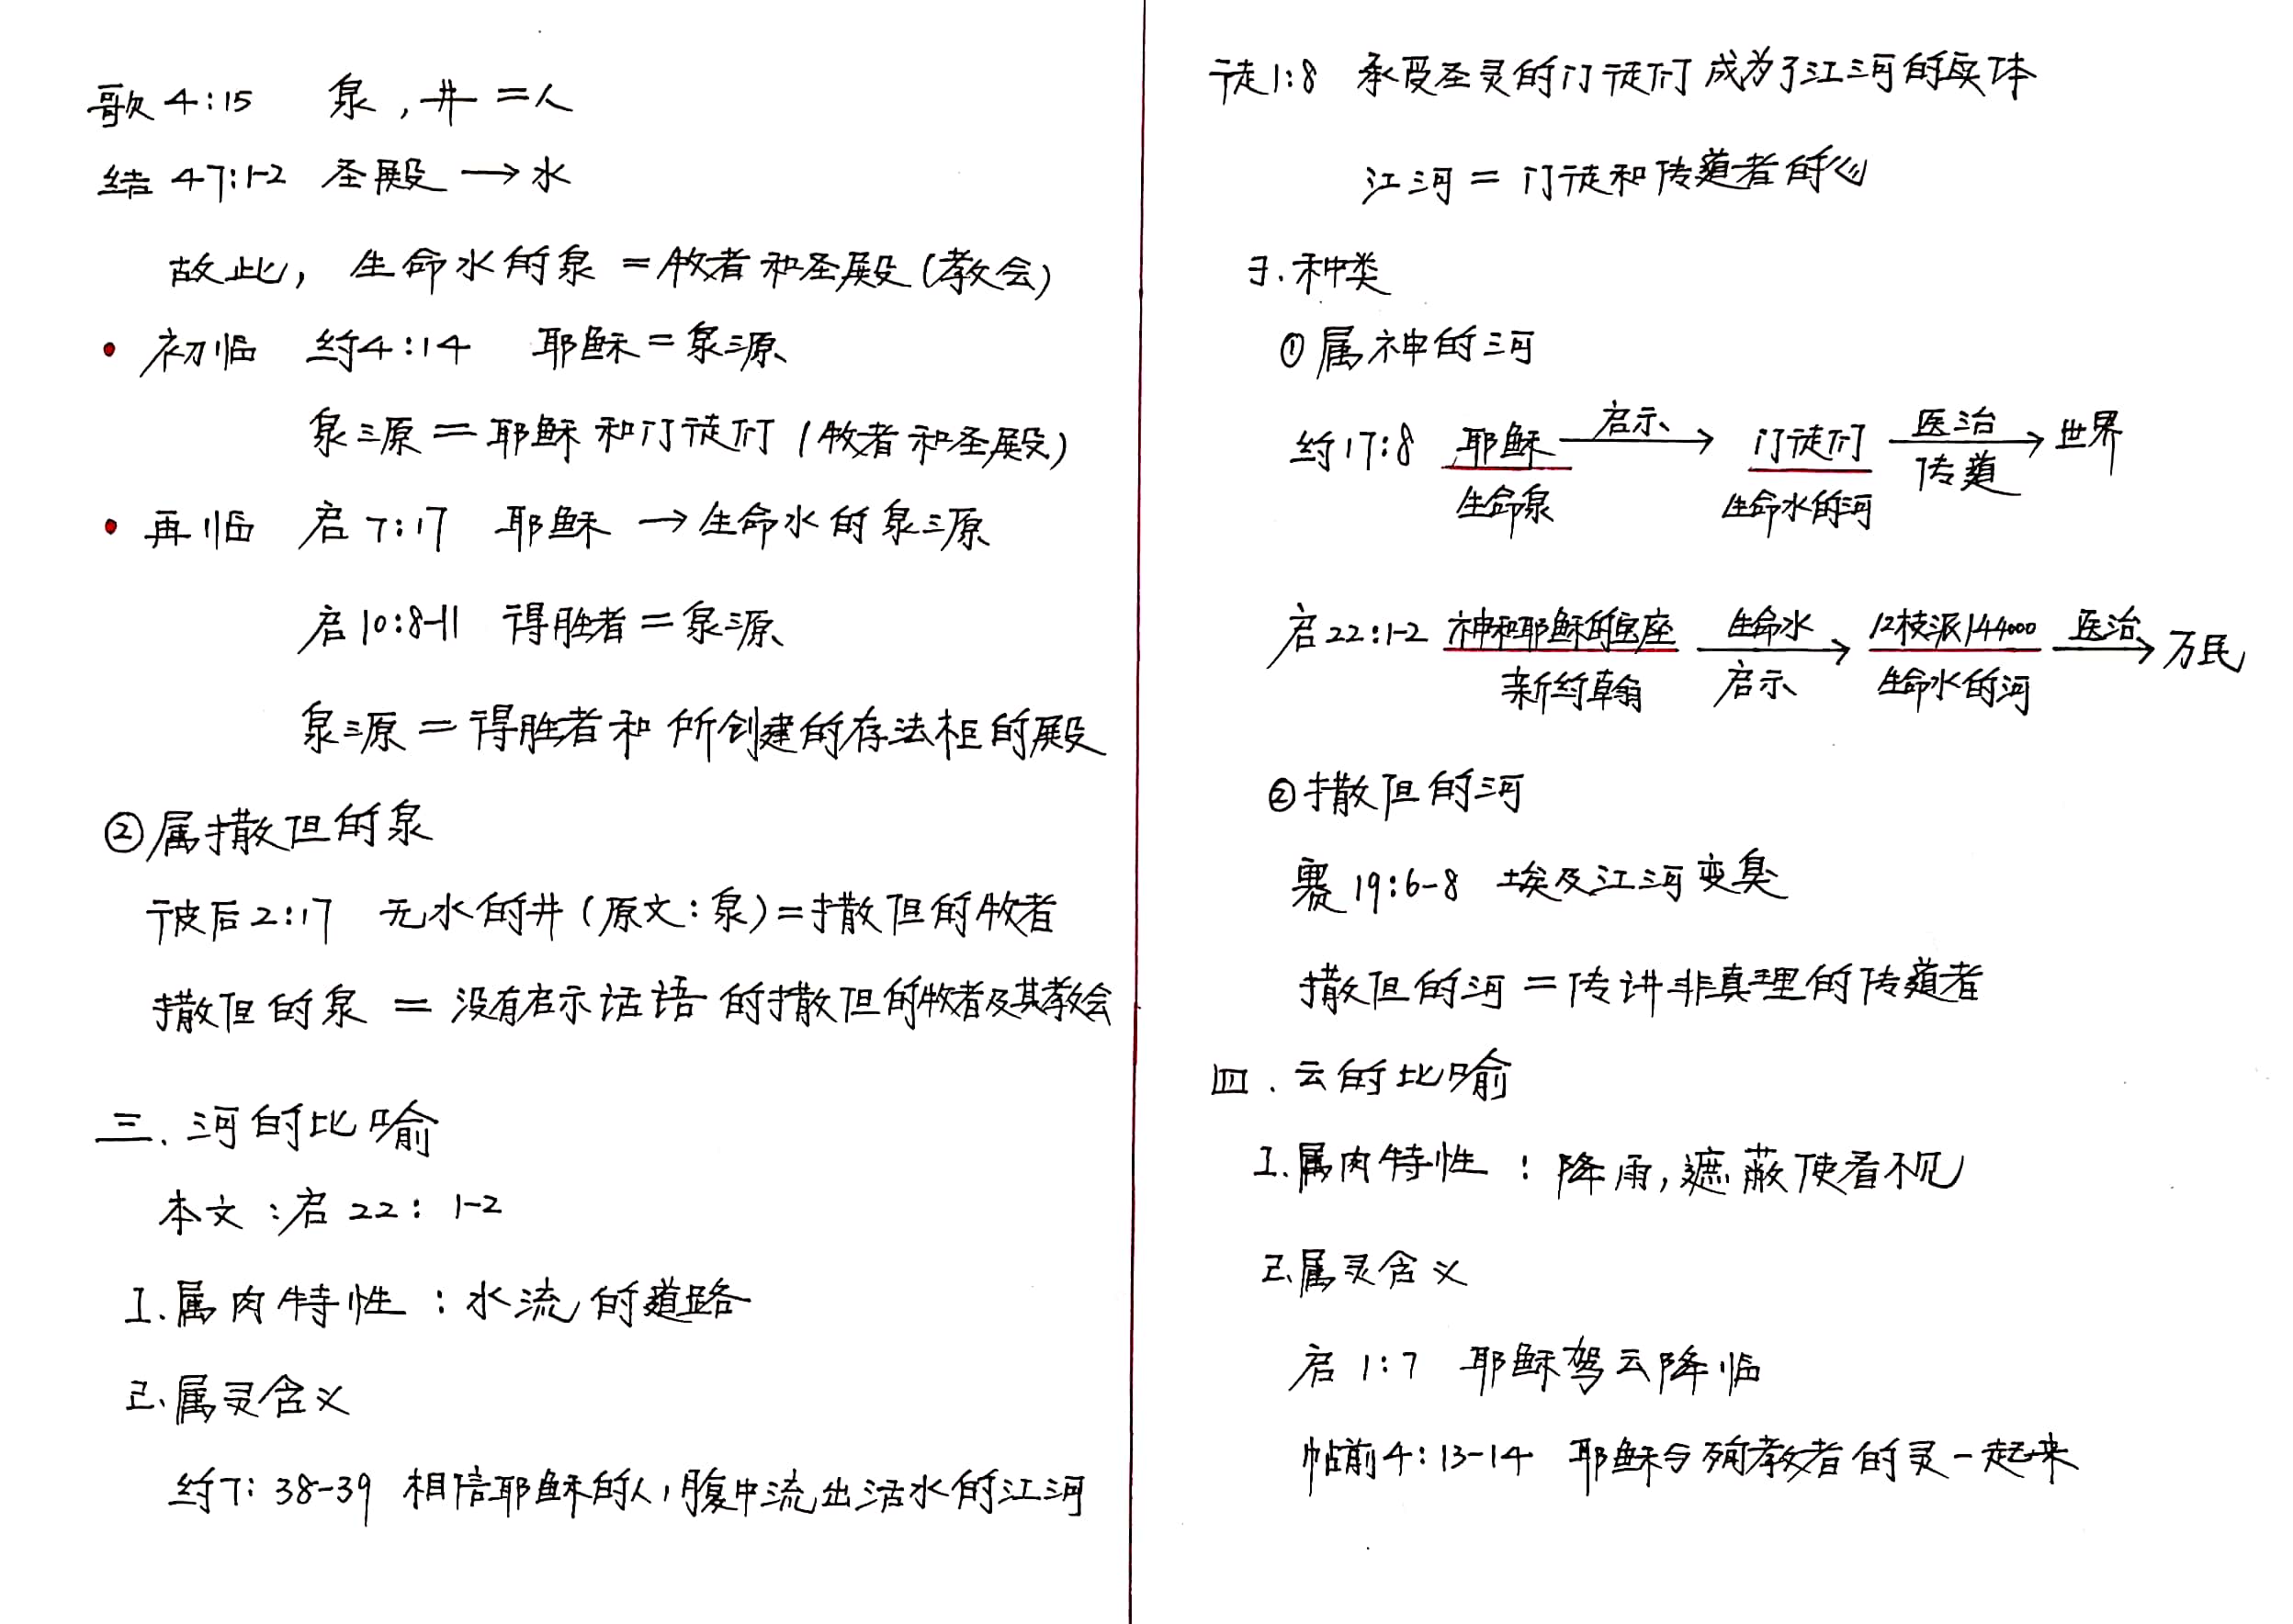 歌4:15 泉,井=人
结47:1-2 圣殿→水
故此, 生命水的泉=牧者和圣殿(教会)
• 初临 约4:14 耶稣=泉源
泉源=耶稣和门徒们(牧者和圣殿)
• 再临 启7:17 耶稣→生命水的泉源
启10:8-11 得胜者=泉源
泉源=得胜者和所创建的存法柜的殿
②属撒但的泉
彼后2:17 无水的井(原文:泉)=撒但的牧者
撒但的泉=没有启示话语的撒但的牧者及其教会
三.河的比喻
本文:启22:1-2
1.属肉特性:水流的道路
2.属灵含义
约7:38-39 相信耶稣的人,腹中流出活水的江河
徒1:8 承受圣灵的门徒们成为了江河的实体
江河=门徒和传道者的心
3.种类
①属神的河
约17:8 耶稣 启示→ 门徒们 医治→ 世界
生命泉 生命水的河 传道
启22:1-2 神和耶稣的宝座 生命水→ 12枝派144000 医治→ 万民
新约翰 启示 生命水的河
②撒但的河
赛19:6-8 埃及江河变臭
撒但的河=传讲非真理的传道者
四.云的比喻
1.属肉特性:降雨,遮蔽使看不见
2.属灵含义
启1:7 耶稣驾云降临
帖前4:13-14 耶稣与殉教者的灵一起来